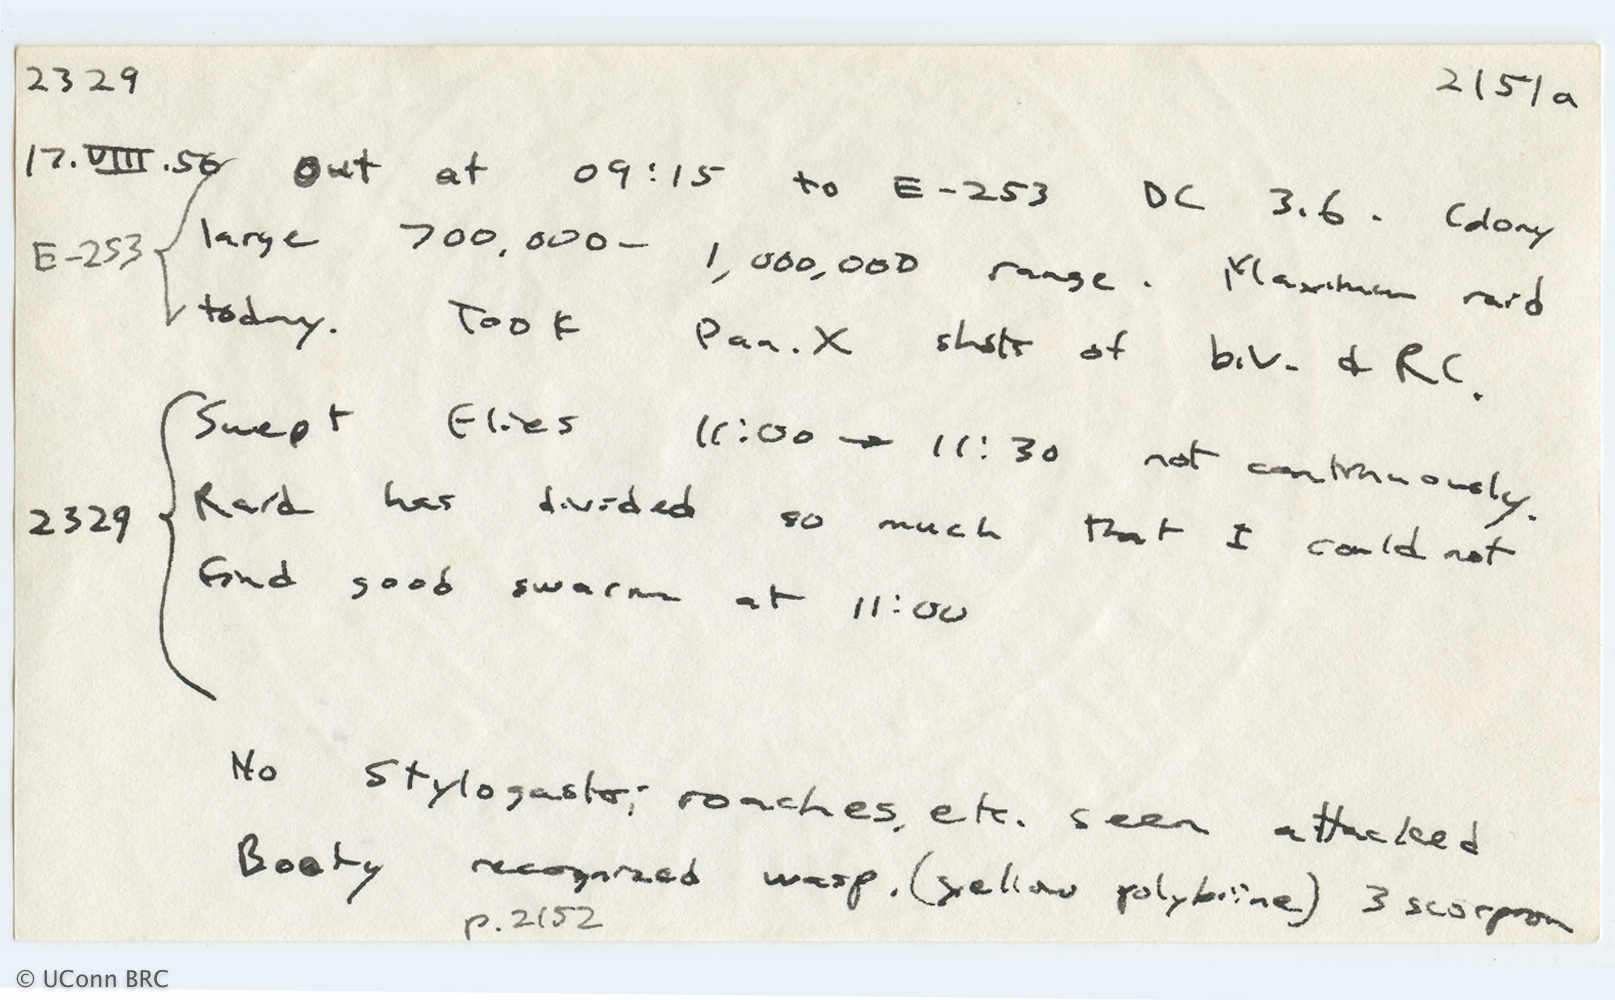 2329 2151a
17.VIII.56 Out at 09:15 to E-253 DC 3.6. Colony
E-253 large 700,000- 1,000,000 range. Maximum raid
today. Took Pan.X shots of biv. & RC.
Swept Flies 11:00 → 11:30 not continuously.
2329 Raid has divided so much that I could not
find good swarm at 11:00
No Stylogaster; roaches, etc. seen attacked
Booty recognized wasp. (yellow polybiine) 3 scorpion
p.2152
© UConn BRC